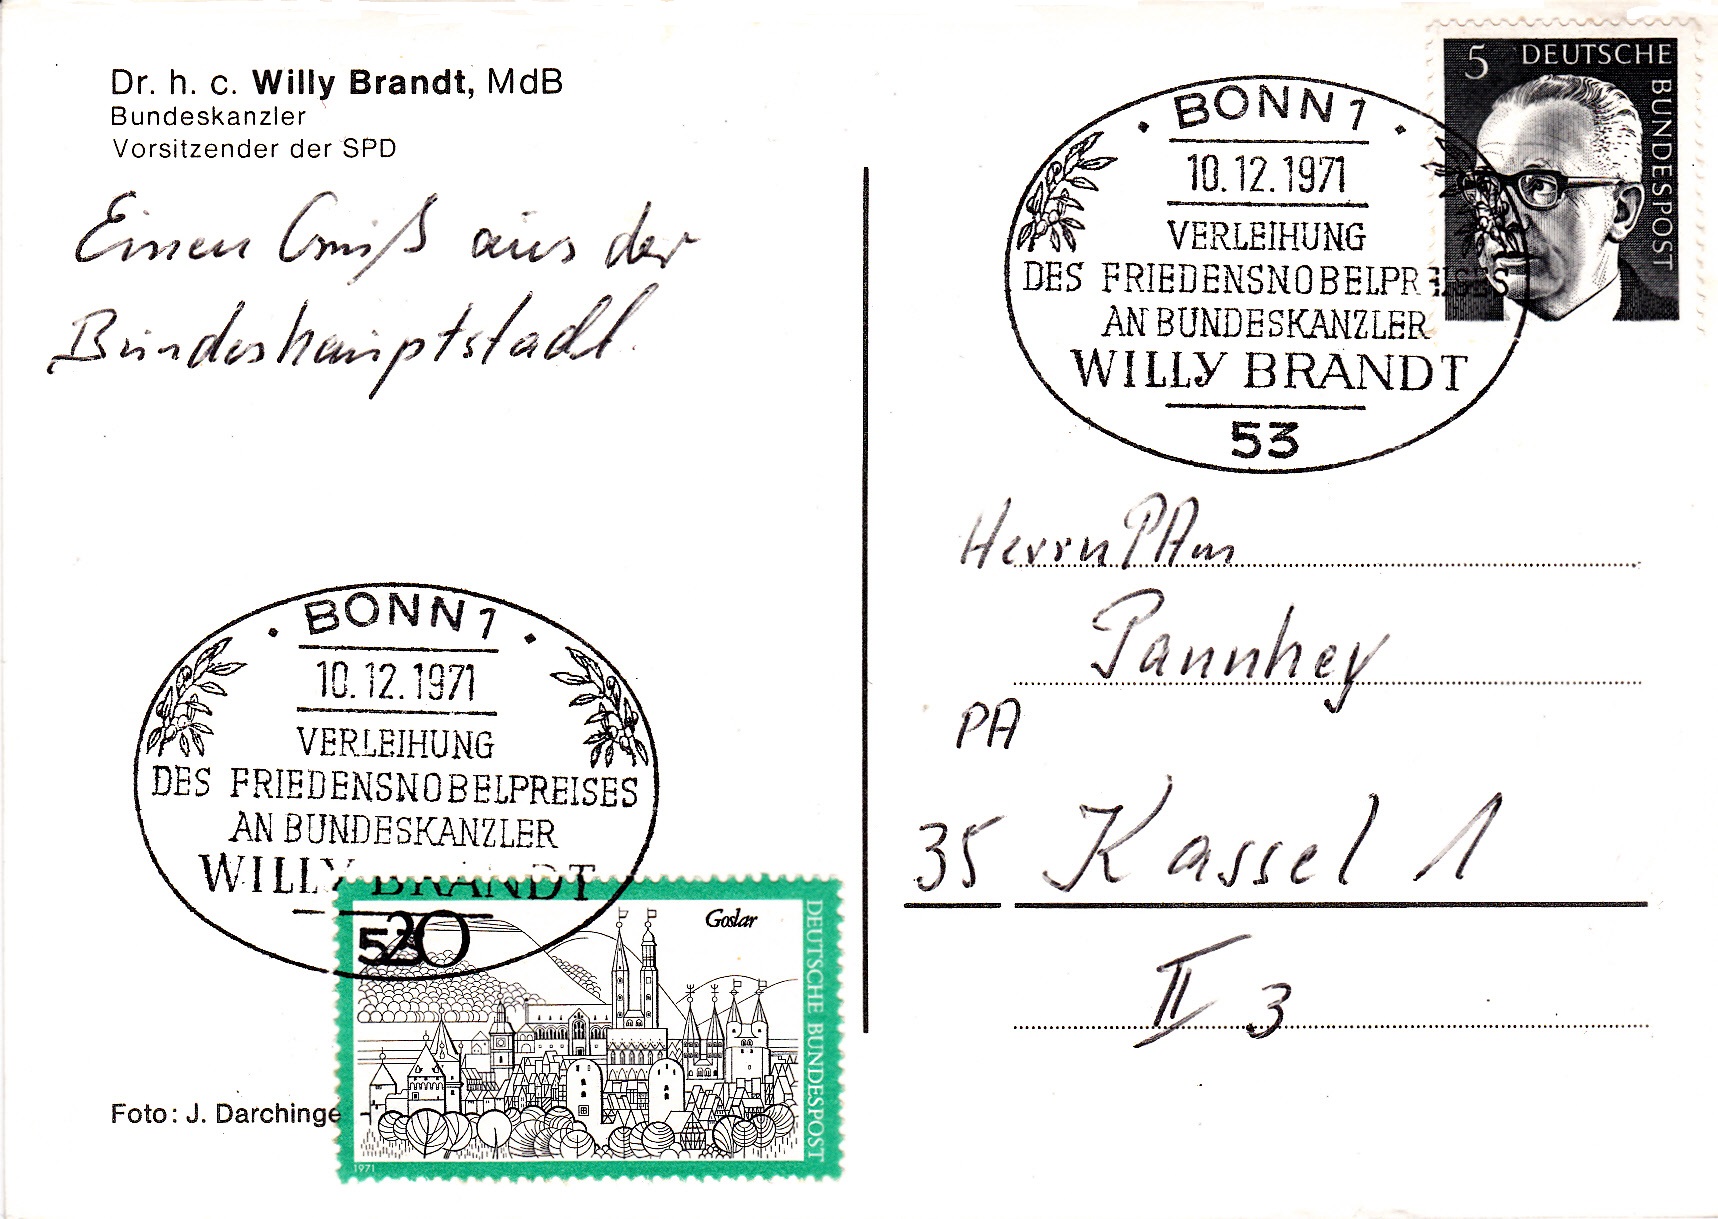 Dr. h. c. Willy Brandt, MdB
Bundeskanzler
Vorsitzender der SPD
Einen Gruß aus der
Bundeshauptstadt.
· BONN 1 ·
10.12.1971
VERLEIHUNG
DES FRIEDENSNOBELPREISES
AN BUNDESKANZLER
WILLY BRANDT
53
20
Goslar
DEUTSCHE BUNDESPOST
1971
Foto: J. Darchinge
5 DEUTSCHE
BUNDESPOST
· BONN 1 ·
10.12.1971
VERLEIHUNG
DES FRIEDENSNOBELPREISES
AN BUNDESKANZLER
WILLY BRANDT
53
Herrn PAm
Pannhey
PA
35 Kassel 1
II 3